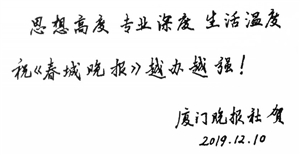 思想高度 专业深度 生活温度
祝《春城晚报》越办越强！
厦门晚报社 贺
2019.12.10